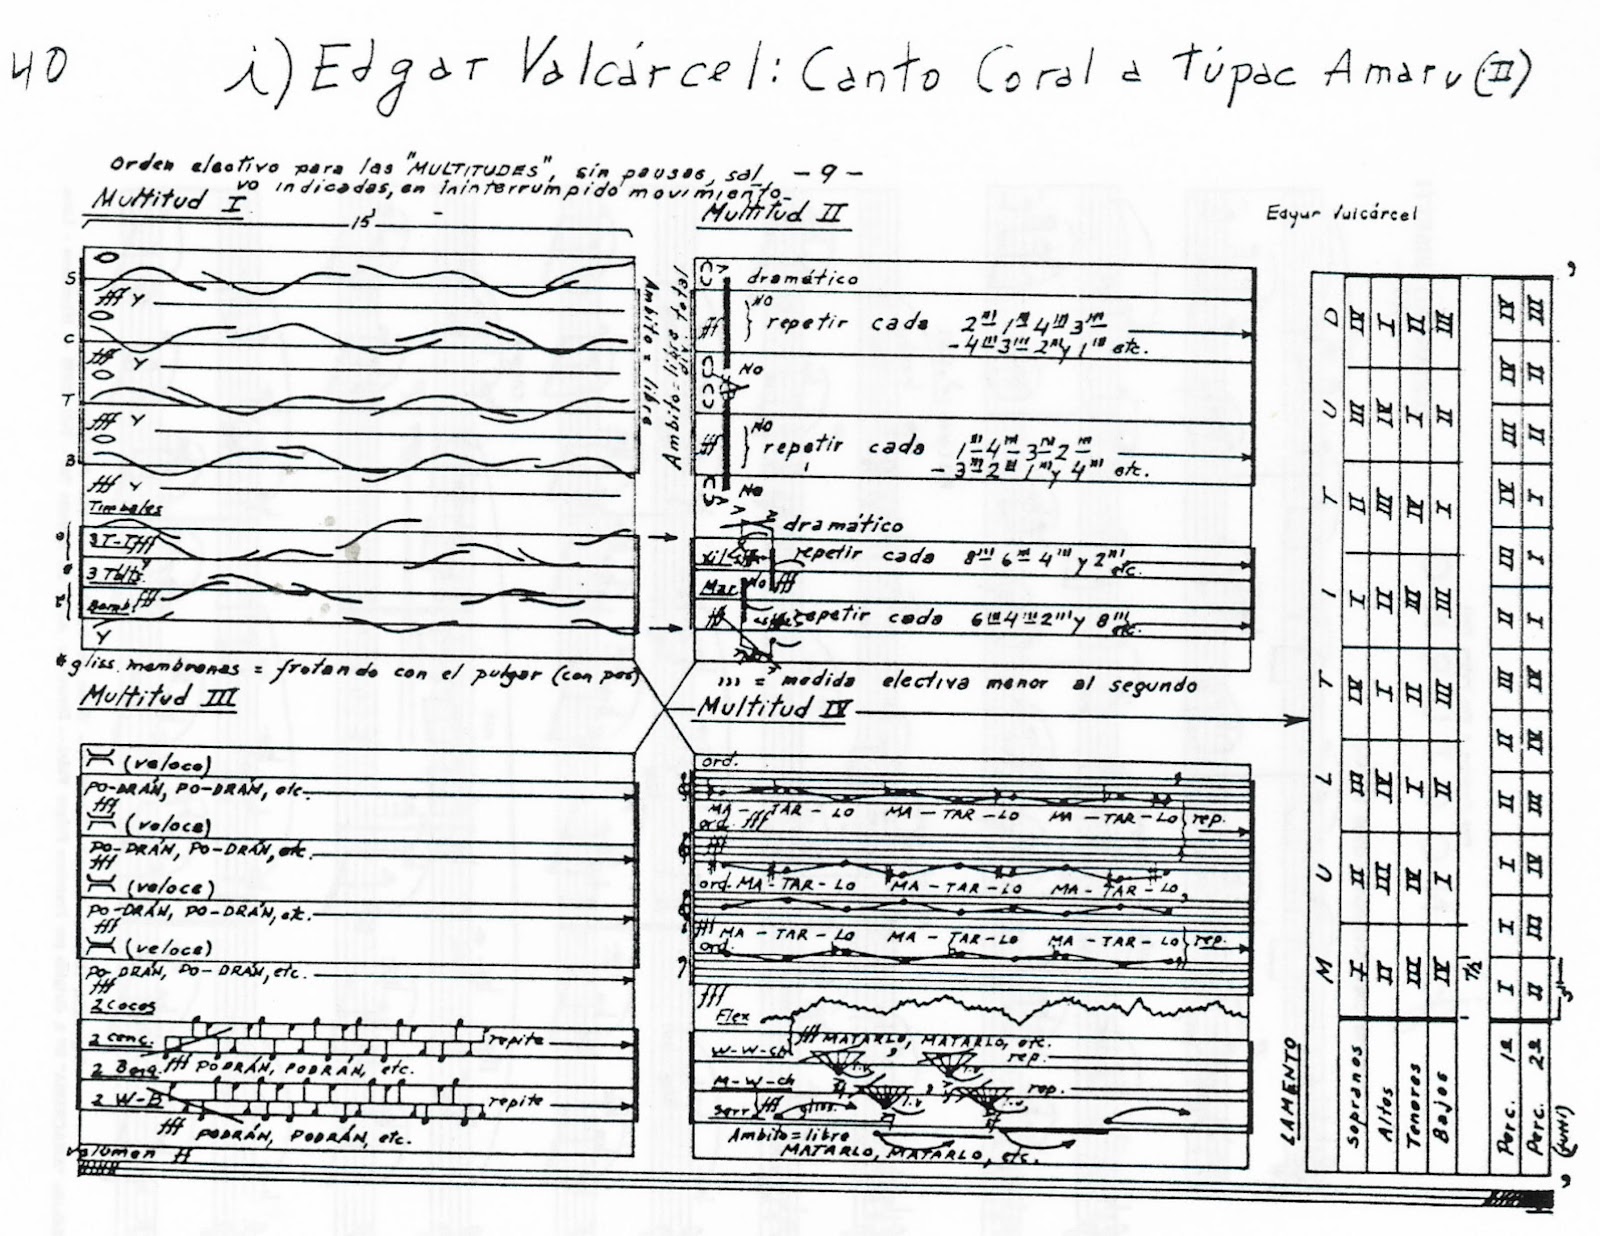 40
i) Edgar Valcárcel: Canto Coral a Túpac Amaru (II)
Orden electivo para las "MULTITUDES", sin pausas, sal - 9 -
vo indicadas, en ininterrumpido movimiento-
Edgar Valcárcel
Multitud I
15'
S
fff Y
C
fff Y
T
fff Y
B
fff Y
Ambito = libre
Timbales
3 T-T fff
3 Tblts.
Bomb. fff
Y
* gliss. membranas = frotando con el pulgar (con pes)
Multitud II
Ambito = libre total
dramático
NO
ff } repetir cada 2''' 1''' 4''' 3'''
- 4''' 3''' 2''' y 1''' etc.
NO
NO
ff } repetir cada 1''' 4''' 3''' 2'''
- 3''' 2''' 1''' y 4''' etc.
NO
dramático
Xil. repetir cada 8''' 6''' 4''' y 2''' etc.
Mar. NO fff
repetir cada 6''' 4''' 2''' y 8''' etc.
''' = medida electiva menor al segundo
Multitud III
(veloce)
PO-DRÁN, PO-DRÁN, etc.
fff
(veloce)
PO-DRÁN, PO-DRÁN, etc.
fff
(veloce)
PO-DRÁN, PO-DRÁN, etc.
fff
(veloce)
PO-DRÁN, PO-DRÁN, etc.
fff
2 cocos
2 cenc. repite
fff PODRÁN, PODRÁN, etc.
2 Bong.
2 W-B repite
fff PODRÁN, PODRÁN, etc.
volumen ff
Multitud IV
ord.
MA - TAR - LO MA - TAR - LO MA - TAR - LO } rep.
ord. fff
fff
ord. MA - TAR - LO MA - TAR - LO MA - TAR - LO
fff MA - TAR - LO MA - TAR - LO MA - TAR - LO } rep.
ord.
fff
Flex
fff MATARLO, MATARLO, etc.
W-W-ch rep.
M-W-ch rep.
Serr. fff gliss.
Ambito = libre
MATARLO, MATARLO, etc.
LAMENTO
MULTITUD
Sopranos I II III IV I II III IV
Altos II III IV I II III IV I
Tenores III IV I II III IV I II
Bajos IV I II III III I II III
7½'
Perc. 1a I I I II II III II III IV III IV IV
Perc. 2a II III IV III IV I I I I II II III
5''